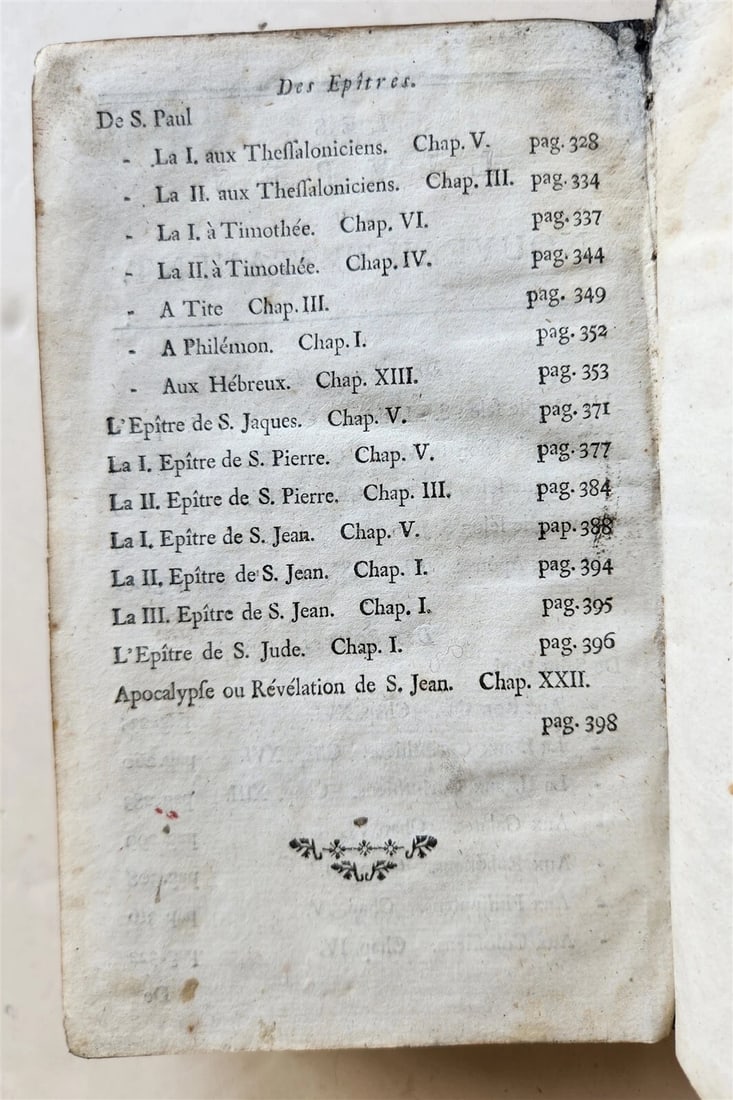 Des Epîtres.
De S. Paul
- La I. aux Theſſaloniciens. Chap. V. pag. 328
- La II. aux Theſſaloniciens. Chap. III. pag. 334
- La I. à Timothée. Chap. VI. pag. 337
- La II. à Timothée. Chap. IV. pag. 344
- A Tite Chap. III. pag. 349
- A Philémon. Chap. I. pag. 352
- Aux Hébreux. Chap. XIII. pag. 353
L'Epître de S. Jaques. Chap. V. pag. 371
La I. Epître de S. Pierre. Chap. V. pag. 377
La II. Epître de S. Pierre. Chap. III. pag. 384
La I. Epître de S. Jean. Chap. V. pap. 388
La II. Epître de S. Jean. Chap. I. pag. 394
La III. Epître de S. Jean. Chap. I. pag. 395
L'Epître de S. Jude. Chap. I. pag. 396
Apocalypſe ou Révélation de S. Jean. Chap. XXII.
pag. 398